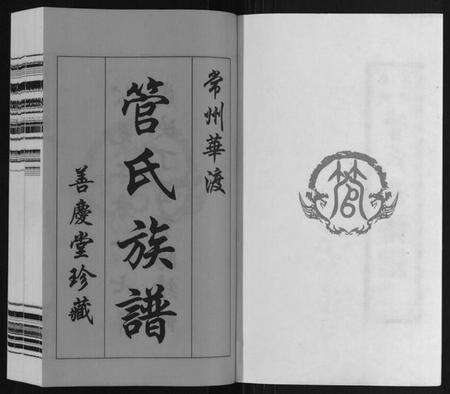 常州華渡
管氏族譜
善慶堂珍藏
管